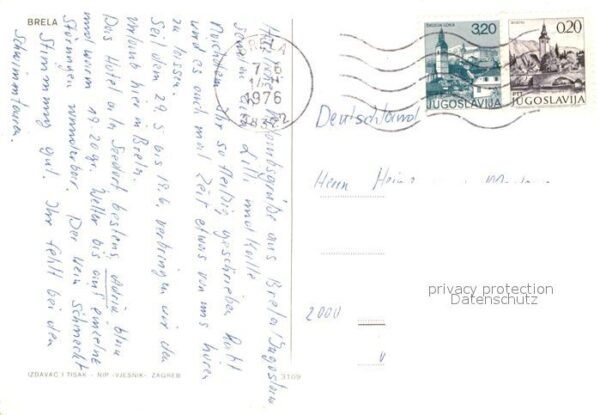 BRELA
Herzliche Urlaubsgrüße aus Brela/Jugoslawien
senden Lilli und Kalle
Nachdem Ihr so fleißig geschrieben habt
wird es auch mal Zeit etwas von uns hören
zu lassen.
Seit dem 29.5 bis 18.6. verbringen wir den
Urlaub hier in Brela.
Das Hotel in bestens, Adria blau
und warm 19-20 gr. Wetter bis auf einzelne
Störungen wunderbar. Der Wein schmeckt
Stimmung gut. Ihr fehlt bei den
IZDAVAČ I TISAK - NIP «VJESNIK», ZAGREB
3109
BRELA
1976
ŠKOFJA LOKA
3,20
JUGOSLAVIJA
BOHINJ
0,20
JUGOSLAVIJA
Deutschland
Herrn Heinz
2000
privacy protection
Datenschutz